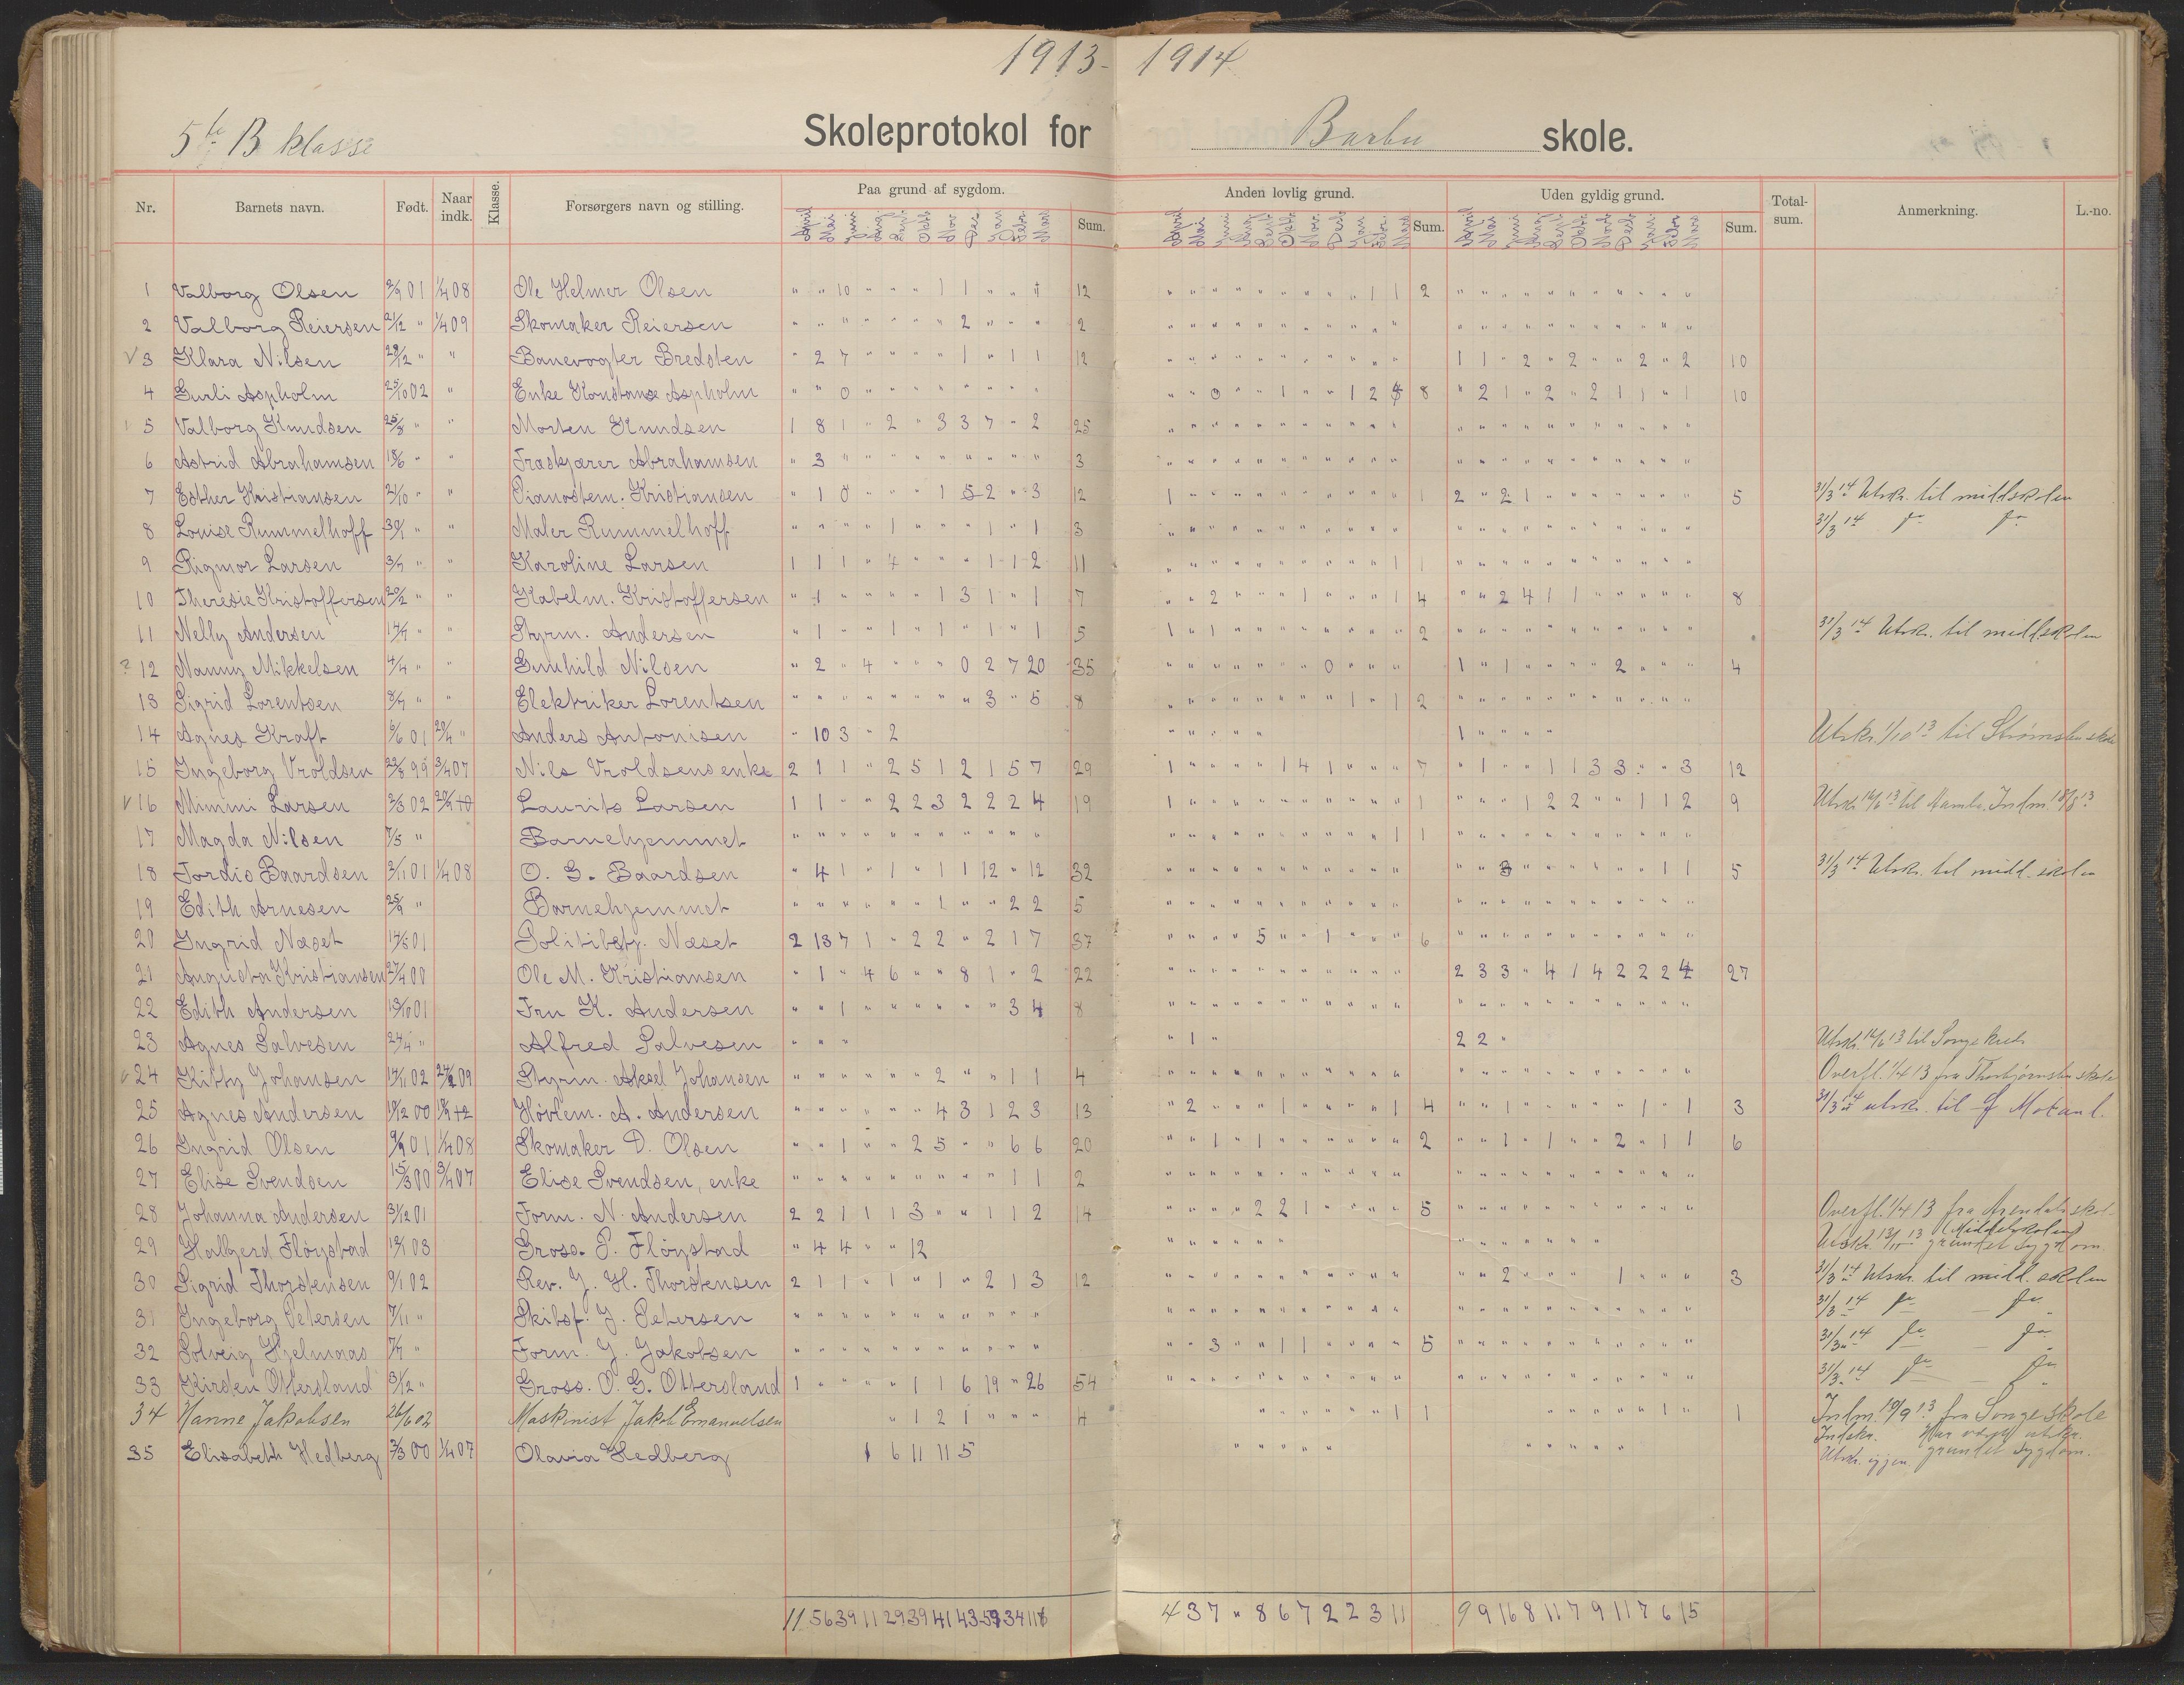 1913- 1914
5te B klasse Skoleprotokol for Barbu skole.
Nr. Barnets navn. Født. Naar indk. Klasse. Forsørgers navn og stilling. Paa grund af sygdom. Sum. Anden lovlig grund. Sum. Uden gyldig grund. Sum. Total-sum. Anmerkning. L.-no.
1 Valborg Olsen 01 1/4 08 Ole Helmer Olsen " " 10 " " " 1 1 " " 12 " " " " " " " " " 1 1 2 " " " " " " " " " " "
2 Valborg Reiersen 21/12 " 1/4 09 Skomaker Reiersen " " " " " " " 2 " " " 2 " " " " " " " " " " " " " " " " " " " " " "
3 Klara Nilsen 29/12 " " Banevogter Bredsten " 2 7 " " " " 1 " 1 1 12 " " " " " " " " " " " 1 1 " 2 " 2 " " 2 " 2 10
4 Gurli Aspholm 25/10 02 " Enke Konstanse Aspholm " " 0 " " " " " " " " " " 0 " " 1 " " 1 2 8 " 2 1 " 2 " 2 1 1 " 1 10
5 Valborg Knudsen 25/8 " " Morten Knudsen 1 8 1 " 2 " 3 3 7 " 2 25 " " " " " " " " " " " " " " " " " " " " " "
6 Astrid Abrahamsen 18/6 " " Træskjærer Abrahamsen " 3 " " " " " " " " " 3 " " " " " " " " " " " " " " " " " " " " " "
7 Esther Kristiansen 21/10 " " Pianostem. Kristiansen " 1 0 " " " 1 5 2 " 3 12 1 " " " " " " " " " " 1 2 " 2 1 " " " " " " " 5 31/3 14 Utskr. til middskolen
8 Louise Rummelhoff " " Maler Rummelhoff " " " " 1 " " " 1 " 1 3 " " " " " " " " " " " " " " " " " " " " " " 31/3 14
9 Rigmor Larsen " " Karoline Larsen 1 1 1 " 4 " " " 1 1 2 11 " " " " " " " " " " 1 1 " " " " " " " " " " "
10 Theresie Kristoffersen 20/2 " " Kabelm. Kristoffersen " 1 " " " " 1 3 1 " 1 7 " " 2 " " " 1 " " " 1 4 " " 2 4 1 1 " " " " " 8
11 Nelly Andersen " " Styrm. Andersen " 1 " " 1 " 1 " 1 " 1 5 1 " 1 " " " " " " " " 2 " " " " " " " " " " " 31/3 14 Utskr. til middskolen
12 Nanny Mikkelsen 4/4 " " Gunhild Nilsen " 2 " 4 " " " 0 2 7 20 35 " " " " " " " 0 " " " 1 " 1 " " " " 2 " " " 4
13 Sigrid Lorentsen " " Elektriker Lorentsen " " " " " " " " 3 " 5 8 " " " " " " " " 1 " 1 2 " " " " " " " " " " "
14 Agnes Kraft 01 " Anders Antonisen " 10 3 " 2 " " " " " 1 " " " " Utskr. 1/10 13 til Strømsbu skole
15 Ingeborg Vroldsen 99 3/4 07 Nils Vroldsens enke 2 1 1 " 2 5 1 2 1 5 7 29 1 " " " " 1 4 1 " " " 7 " 1 " " 1 1 3 3 " " 3 12
16 Mimmi Larsen 2/3 02 Laurits Larsen 1 1 " " 2 2 3 2 2 2 4 19 1 " " " " " " " " " " 1 " " " 1 2 2 " " 1 1 2 9 Utskr. 14/6 13 til Indm. 18/8 13
17 Magda Nilsen 7/5 " Barnehjemmet " " " " " " " " " " " " " " " " " " " " " 1 1 " " " " " " " " " " "
18 Tordis Baardsen 3/11 01 1/4 08 O. G. Baardsen " 4 1 " 1 " 1 1 12 " 12 32 " " " " " " " " " " " " " 3 " " " " " " 1 1 5 31/3 14 Utskr. til midd. skolen
19 Edith Arnesen 25/9 " Barnehjemmet " " " " " " 1 " " 2 2 5 " " " " " " " " " " " " " " " " " " " " " "
20 Ingrid Næset 01 Politibetj. Næset 2 13 7 1 " 2 2 " 2 1 7 37 " " " " 5 " " 1 " " " 6 " " " " " " " " " " "
21 Augusta Kristiansen 27/4 00 Ole M. Kristiansen " 1 " 4 6 " " 8 1 " 2 22 " " " " " " " " " " " 2 3 3 " 4 1 4 2 2 2 4 27
22 Edith Andersen 13/10 01 Fru K. Andersen " " 1 " " " " " " 3 4 8 " " " " " " " " " " " " " " " " " " " " " "
23 Agnes Salvesen 24/4 " Alfred Salvesen " " " " 1 " 2 2 " Utskr. 14/6 13 til Songe kreds
24 Kitty Johansen 14/11 02 09 Styrm. Aksel Johansen " " " " " " 2 " " 1 1 4 " " " " " " " " " " " " " " " " " " " " " " Overfl. 1/4 13 fra Thorbjørnsbu skole
25 Agnes Andersen 00 Høvlem. A. Andersen " " " " " " 4 3 1 2 3 13 " 2 " " " 1 " " " " 1 4 " " 1 " " " " " 1 " 1 3 31/3 14 utskr. til
26 Ingrid Olsen 01 1/4 08 Skomaker D. Olsen " " 1 " " 2 5 " " 6 6 20 " " 1 " 1 " " " " " " 2 " " 1 " 1 " " 2 " 1 1 6
27 Elise Svendsen 15/3 00 3/4 07 Elise Svendsen, enke " " " " " " " " " 1 1 2 " " " " " " " " " " " " " " " " " " " " " "
28 Johanna Andersen 3/12 01 Form. N. Andersen 2 2 1 1 1 3 " " 1 1 2 14 " " " " 2 2 1 " " " " 5 " " " " " " " " " " " Overfl. 1/4 13 fra Arendals skole
29 Halbjerd Fløystad 03 Gross. P. Fløystad " 4 4 " " 12 " " " " " " " " " " " " " Utskr. 13/11 13 Middelskolen grundet sygdom
30 Sigrid Thorstensen 9/1 02 Rev. J. H. Thorstensen 2 1 1 " 1 " 1 " 2 1 3 12 " " " " " " " " " " " " " 2 " " " " 1 " " " 3 31/3 14 Utskr. til midd. skolen
31 Ingeborg Petersen 7/11 " Skibsf. J. Petersen " " " " " " " " " " " " " " " " " " " " " " " " " " " " " " " " " 31/3 14
32 Solveig Hjelmaas " Form. J. Jakobsen " " " " " " " " " " " " " 3 " " 1 1 " " " " 5 " " " " " " " " " " " 31/3 14
33 Kirsten Ottersland 3/12 " Gross. O. G. Ottersland 1 " " " " 1 1 6 19 " 26 54 " " " " " " " " " " " " " " " " " " " " " " 31/3 14
34 Hanne Jakobsen 26/6 02 Maskinist Jakob Emanuelsen " 1 2 1 " " " 4 " " " " " " 1 1 " " " " " 1 " 1 Indm. 10/9 13 fra Songe skole
35 Elisabeth Hedberg 2/3 00 1/4 07 Olavia Hedberg 1 6 11 11 5 " " " " " " " " " " Indskr. Har været utskr. grundet sygdom.
Utskr. igjen.
11 56 39 11 29 39 41 43 59 34 118 4 3 7 " 8 6 7 2 2 3 11 9 9 16 8 11 7 9 11 7 6 15